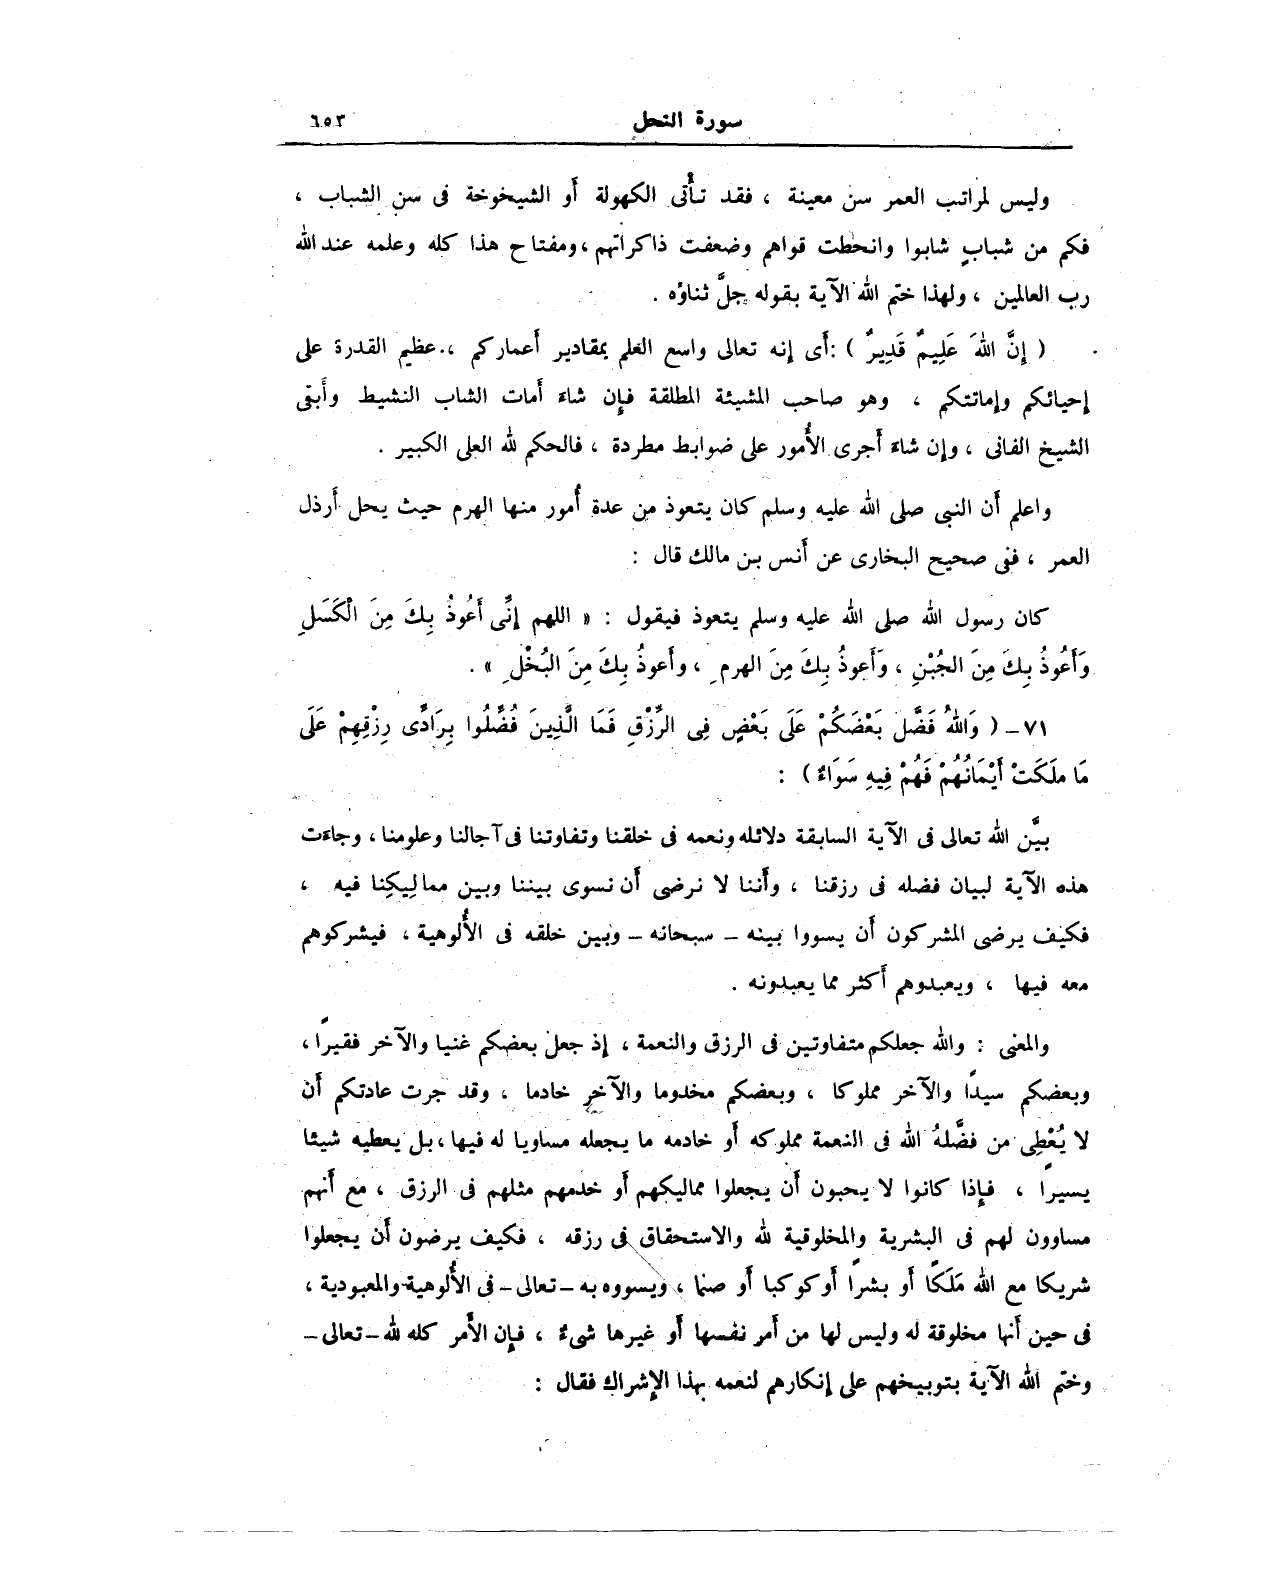 سورة النحل ٦٥٣
وليس لمراتب العمر سن معينة ، فقد تأتى الكهولة أو الشيخوخة فى سن الشباب ،
فكم من شبابٍ شابوا وانحطت قواهم وضعفت ذاكراتهم ، ومفتاح هذا كله وعلمه عند الله
رب العالمين ، ولهذا ختم الله الآية بقوله جلَّ ثناؤه .
( إِنَّ اللهَ عَلِيمٌ قَدِيرٌ ) : أى إنه تعالى واسع العلم بمقادير أعماركم ، عظيم القدرة على
إحيائكم وإماتتكم ، وهو صاحب المشيئة المطلقة فإن شاءَ أمات الشاب النشيط وأبقى
الشيخ الفانى ، وإن شاءَ أجرى الأُمور على ضوابط مطردة ، فالحكم لله العلى الكبير .
واعلم أن النبى صلى الله عليه وسلم كان يتعوذ من عدة أُمور منها الهرم حيث يحل أرذل
العمر ، ففى صحيح البخارى عن أنس بن مالك قال :
كان رسول الله صلى الله عليه وسلم يتعوذ فيقول : « اللهم إنِّى أَعُوذُ بِكَ مِنَ الْكَسَلِ
وَأَعُوذُ بِكَ مِنَ الجُبْنِ ، وَأَعوذُ بِكَ مِنَ الهرمِ ، وأَعوذُ بِكَ مِنَ البُخْلِ » .
٧١ – ( وَاللهُ فَضَّلَ بَعْضَكُمْ عَلَى بَعْضٍ فِى الرِّزْقِ فَمَا الَّذِينَ فُضِّلُوا بِرَادِّى رِزْقِهِمْ عَلَى
مَا مَلَكَتْ أَيْمَانُهُمْ فَهُمْ فِيهِ سَوَاءٌ ) :
بيَّن الله تعالى فى الآية السابقة دلائله ونعمه فى خلقنا وتفاوتنا فى آجالنا وعلومنا ، وجاءَت
هذه الآية لبيان فضله فى رزقنا ، وأننا لا نرضى أن نسوى بيننا وبين مماليكِنا فيه ،
فكيف يرضى المشركون أن يسووا بينه – سبحانه – وبين خلقه فى الأُلوهية ، فيشركوهم
معه فيها ، ويعبدوهم أكثر مما يعبدونه .
والمعنى : والله جعلكم متفاوتين فى الرزق والنعمة ، إذ جعل بعضكم غنيا والآخر فقيرًا ،
وبعضكم سيدًا والآخر مملوكا ، وبعضكم مخدوما والآخر خادما ، وقد جرت عادتكم أن
لا يُعْطِى من فضَّلهُ الله فى النعمة مملوكه أو خادمه ما يجعله مساويا له فيها ، بل يعطيه شيئا
يسيرًا ، فإذا كانوا لا يحبون أن يجعلوا مماليكهم أو خدمهم مثلهم فى الرزق ، مع أنهم
مساوون لهم فى البشرية والمخلوقية لله والاستحقاق فى رزقه ، فكيف يرضون أن يجعلوا
شريكا مع الله مَلَكًا أو بشرًا أو كوكبا أو صنما ، ويسووه به – تعالى – فى الأُلوهية والمعبودية ،
فى حين أنها مخلوقة له وليس لها من أمر نفسها أو غيرها شىءٌ ، فإن الأمر كله لله – تعالى –
وختم الله الآية بتوبيخهم على إنكارهم لنعمه بهذا الإشراك فقال :